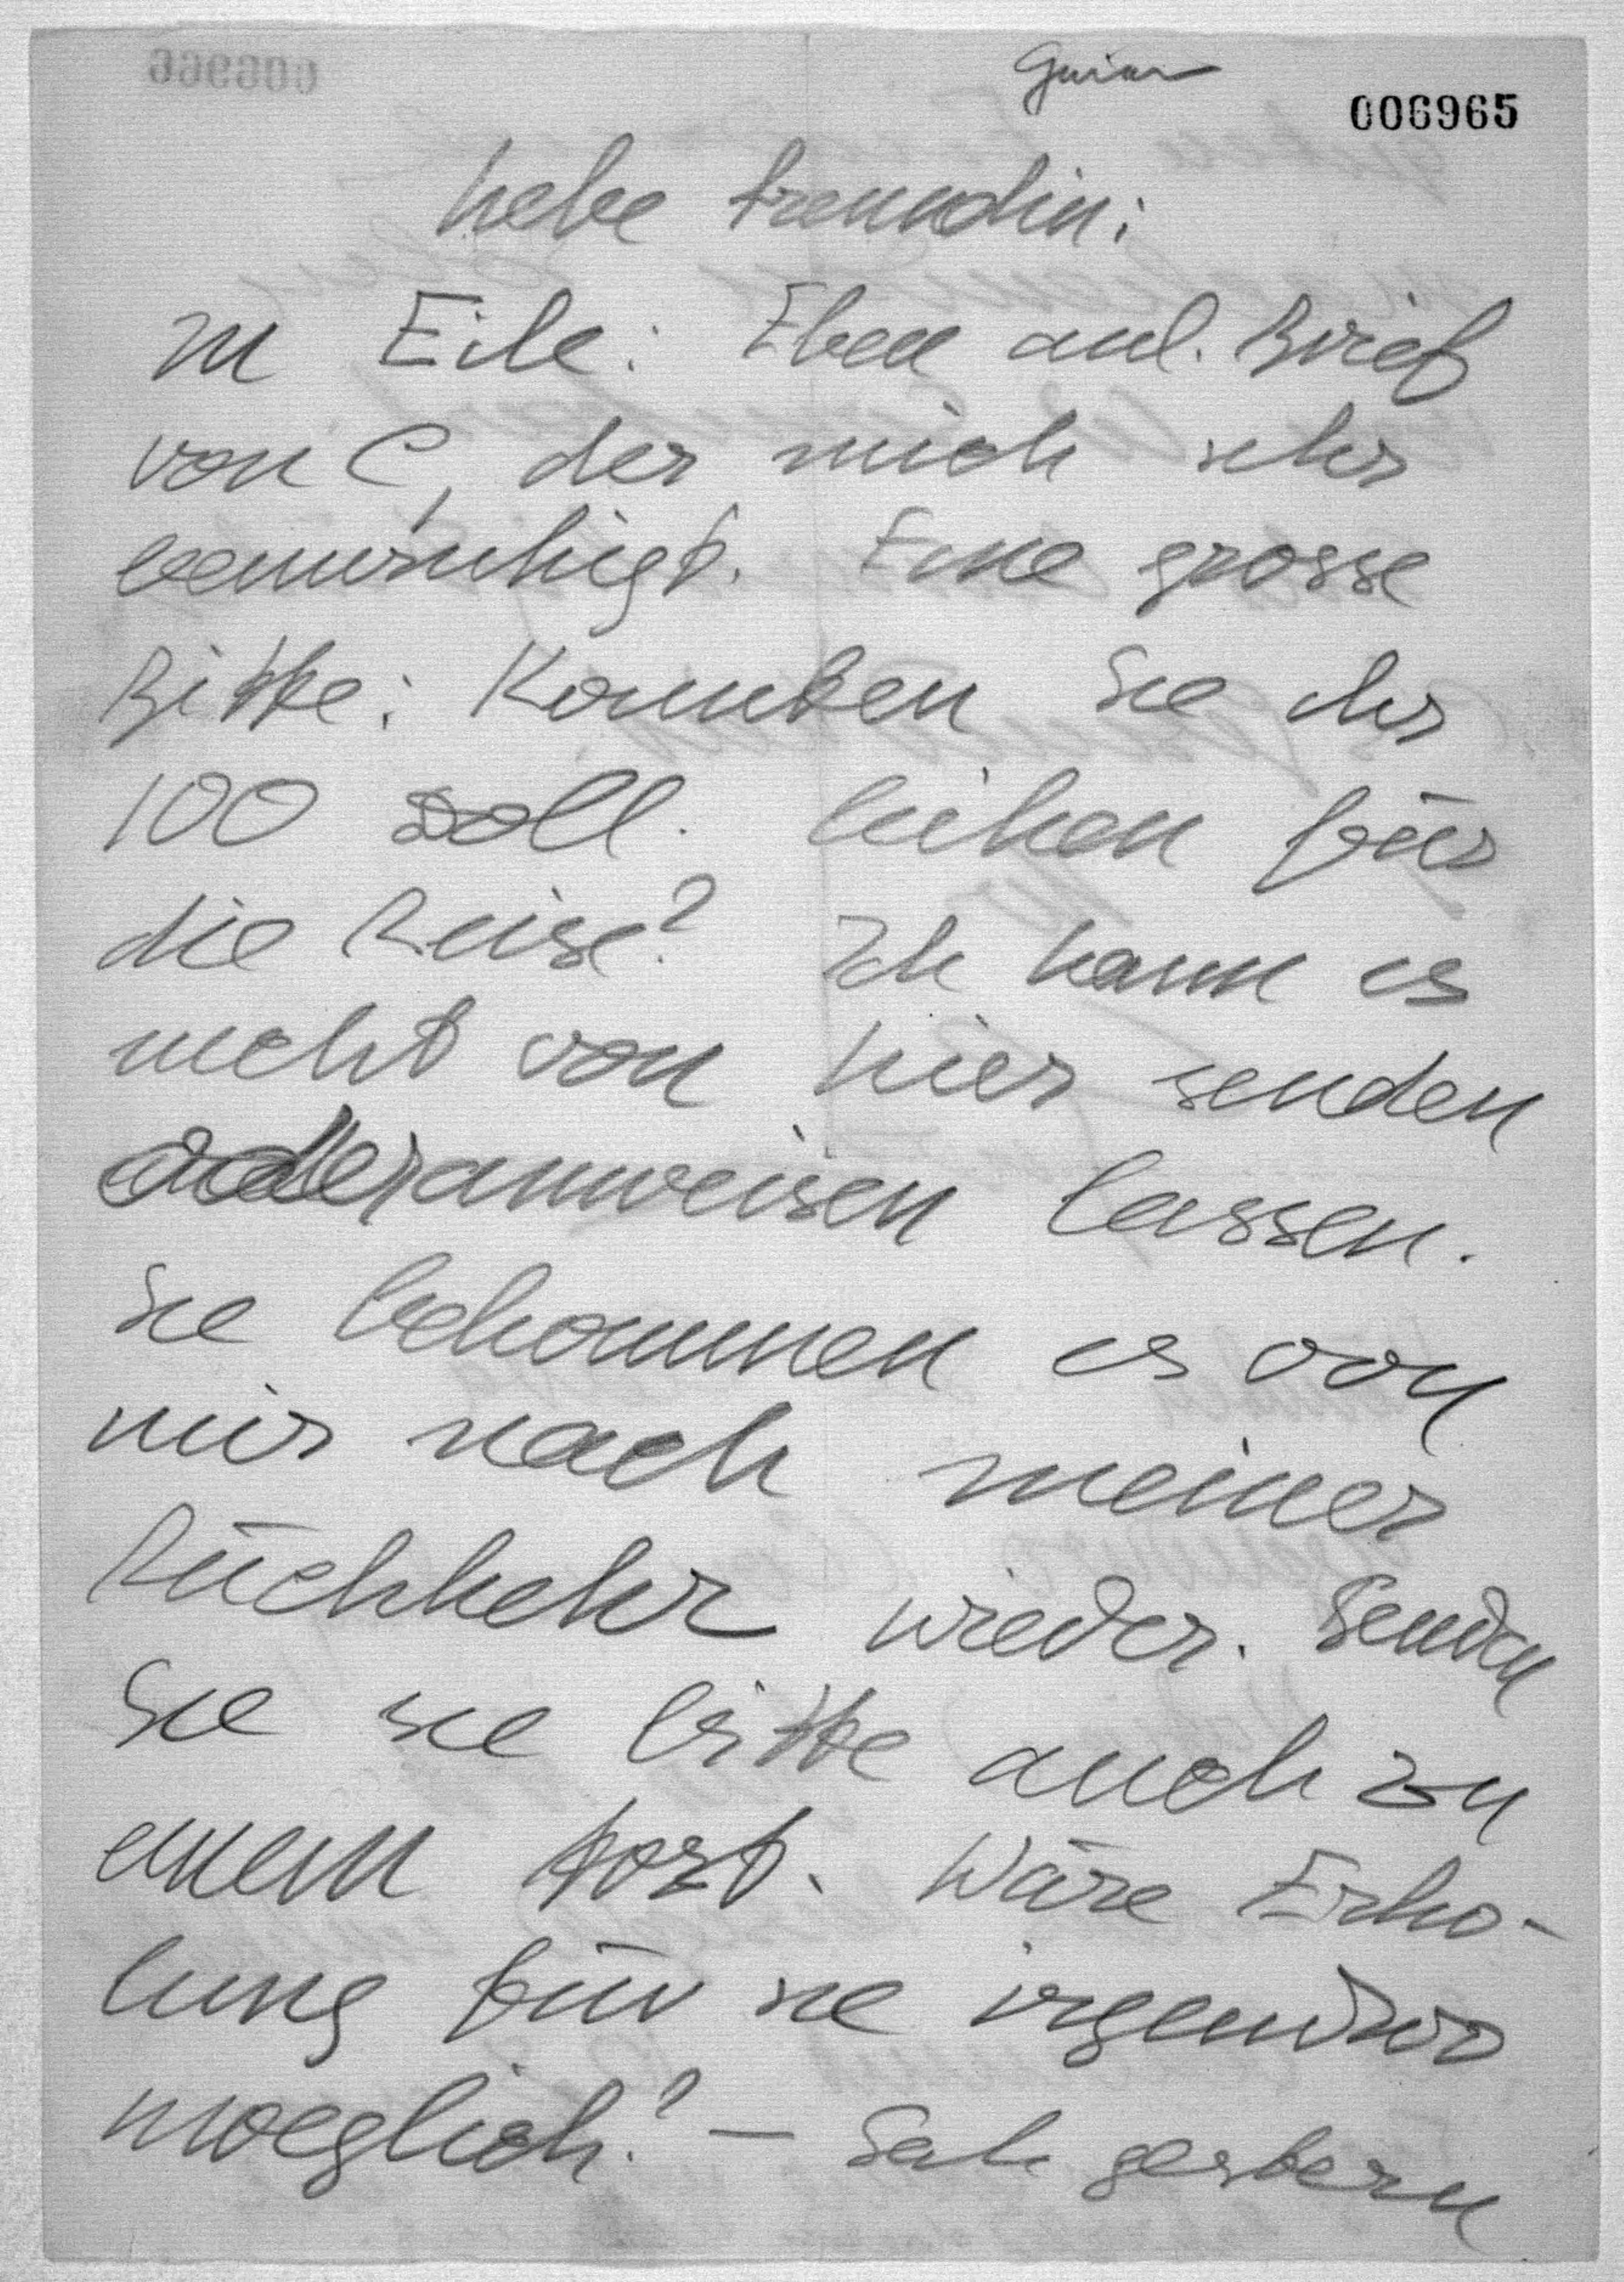 006965
Liebe Freundin:
In Eile: Eben anl. Brief
von C, der mich sehr
beunruhigt. Eine grosse
Bitte: Konnten Sie ihr
100 Doll. leihen für
die Reise? Ich kann es
nicht von hier senden
oder anweisen lassen.
Sie bekommen es von
mir nach meiner
Rückkehr wieder. Senden
Sie sie bitte auch zu
einem Arzt. Wäre Erho-
lung für sie irgendwo
moeglich? — Sah gestern